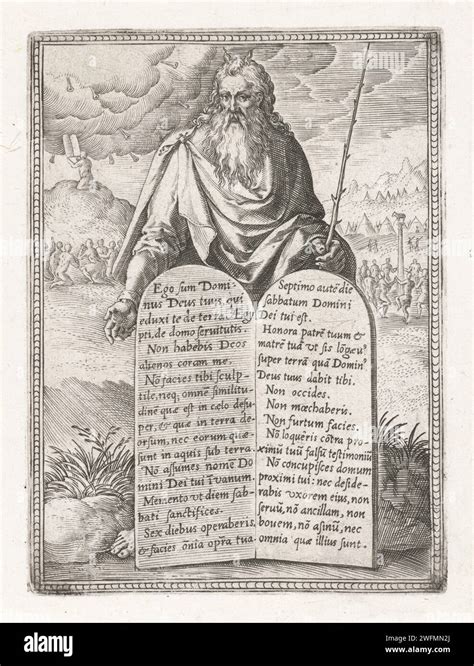 Ego sum Domi-
nus Deus tuus, qui
eduxi te de terra Egy-
pti, de domo servitutis.
Non habebis Deos
alienos coram me.
Nō facies tibi sculp-
tile, neq; omnē similitu-
dinē quæ est in cælo desu-
per, & quæ in terra de-
orsum, nec eorum quæ
sunt in aquis sub terra.
Nō assumes nomē Do-
mini Dei tui ī vanum.
Memento ut diem sab-
bati sanctifices.
Sex diebus operaberis
& facies ōnia opa tua.
Septimo autē die
sabbatum Domini
Dei tui est.
Honora patrē tuum &
matrē tuā ut sis lōgeu9
super terrā quā Domin9
Deus tuus dabit tibi.
Non occides.
Non mœchaberis.
Non furtum facies.
Nō loqueris cōtra pro-
ximū tuū falsū testimoniū
Nō concupisces domum
proximi tui: nec deside-
rabis vxorem eius, non
seruū, nō ancillam, non
bouem, nō asinū, nec
omnia quæ illius sunt.
alamy
Image ID: 2WFMN2J
www.alamy.com